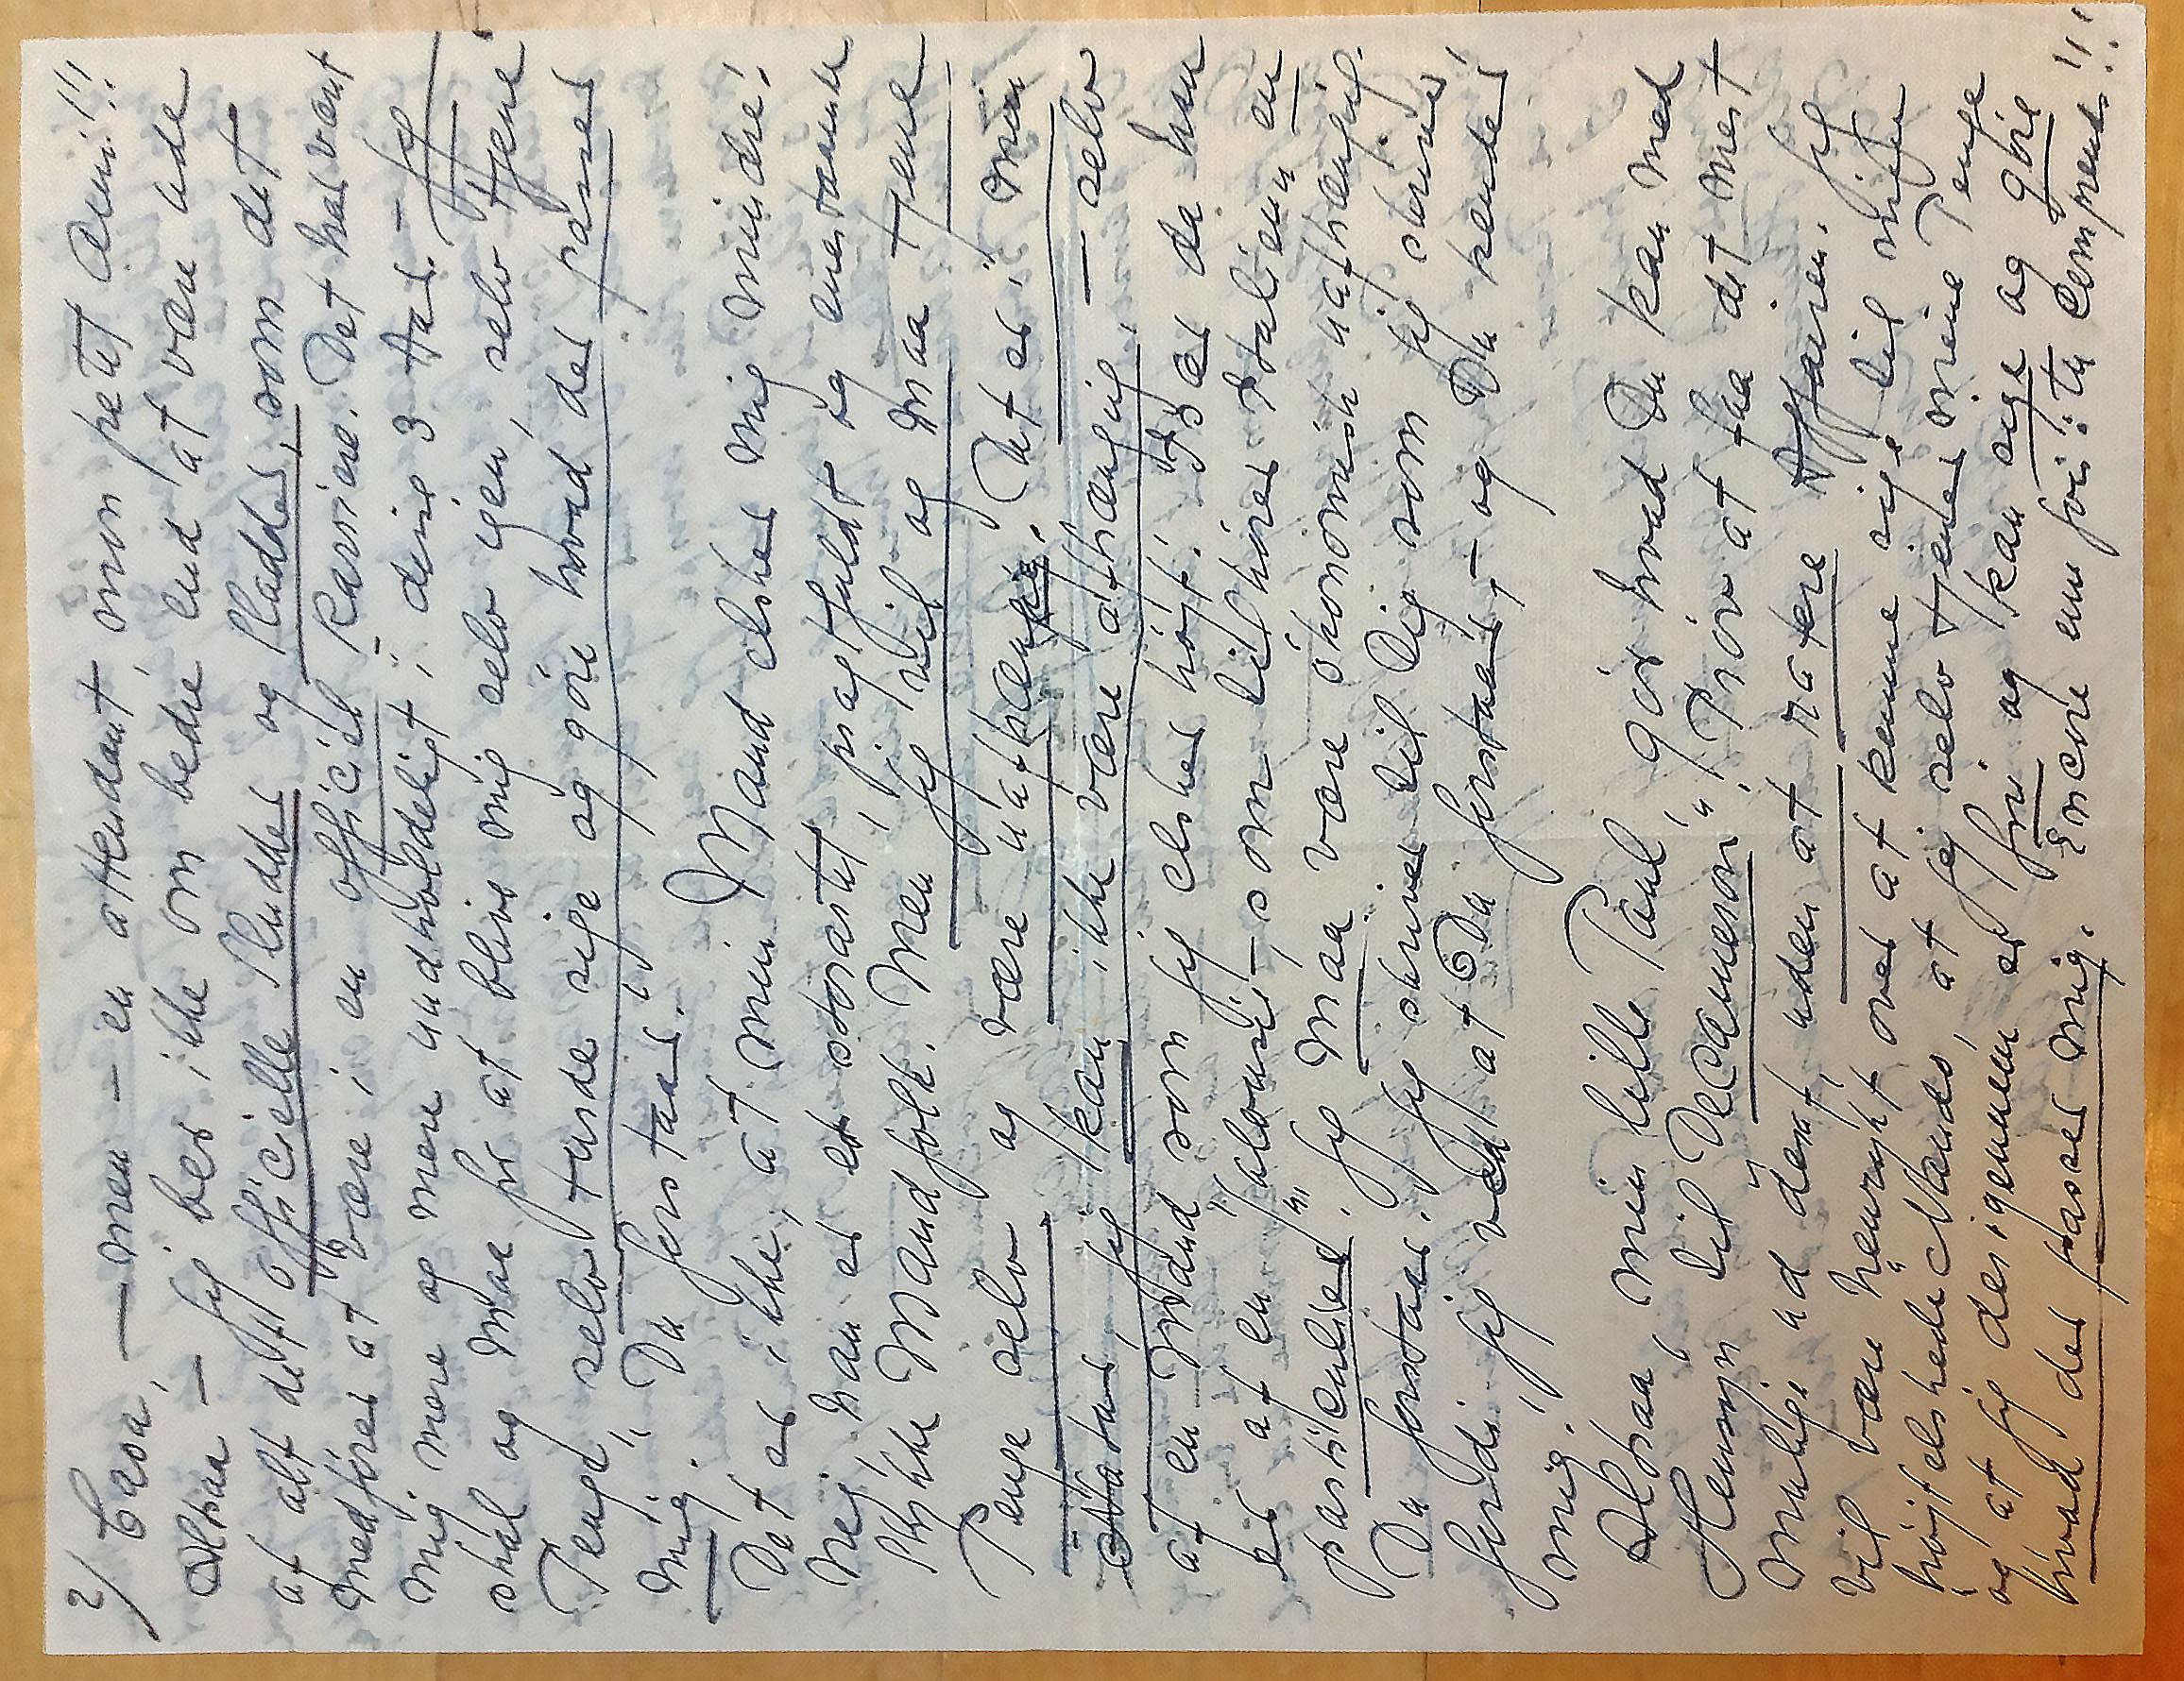 2/ Casa, — men — en attendant, mon petit Ami!!!
Altsaa — jeg ber ikke om bedre end at være ude
af alt det officielle Sludder og Sladder, som det
medfører at være i en officiel Karriere. Det har været
mig mere og mere uudholdeligt i disse 3 Aar. — Jeg
skal og maa for at blive mig selv igen, selv tjene
Penge, selv turde sige og göre hvad der passer
mig." Du forstaar!"
Det er ikke, at min Mand elsker mig mindre!
Nej, han er et storartet, pragtfuldt og enestaaende
Stykke Mandfolk. Men jeg vil og maa tjene
Penge selv og være uafhængig. Det er i min
Natur, jeg kan ikke være afhængig, — selv
af en Mand som jeg elsker højt! Især da han
er af en "Jalousie —, som tilhører Italien en
particulier". Jeg maa være ökonomisk uafhængig.
Du forstaar! Jeg skriver til Dig som jeg skriver,
fordi jeg ved at Du forstaar, — og Du kender
mig!
Altsaa, min lille Paul, gör hvad Du kan med
Hensyn til "Decameron"! Pröv at faa det mest
mulige ud deraf, uden at ratere Affairen. Jeg
vil være henrykt over at kunne sige til min
"højtelskede" Nando, at jeg selv tjener mine Penge
og at jeg derigennem er fri og kan sige og göre
hvad der passer mig. Encore une fois: tu comprends!!!